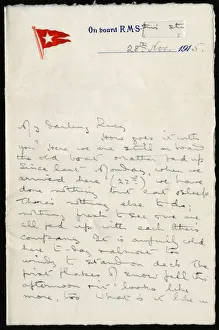 On board R.M.S.
this st
28th Nov. 1915.
My darling
How goes it with
you? Here we are still on board
the old boat, rather fed up
Since last Monday, when we
arrived here (22nd) we have
done nothing but eat & sleep
There's nothing else to do;
nothing fresh to see & we are
all fed up with each others
company. It is awfully cold
here to-day & almost too
windy to stand on deck. The
first flakes of snow fell this
afternoon & it looks like
more, too. What is it like in